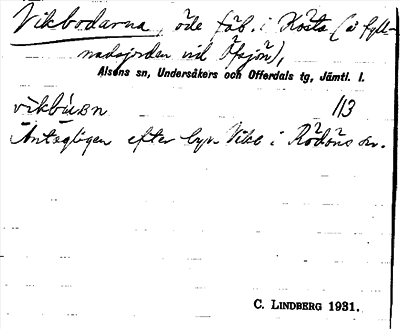 Vikbodarna, öde fäb. i Kösta (å fyll-
nadsjorden vid Öfsjön),
Alsens sn, Undersåkers och Offerdals tg, Jämtl. l.
vikbúɐn 113
Antagligen efter byn Vike i Rödöns sn.
C. LINDBERG 1931.